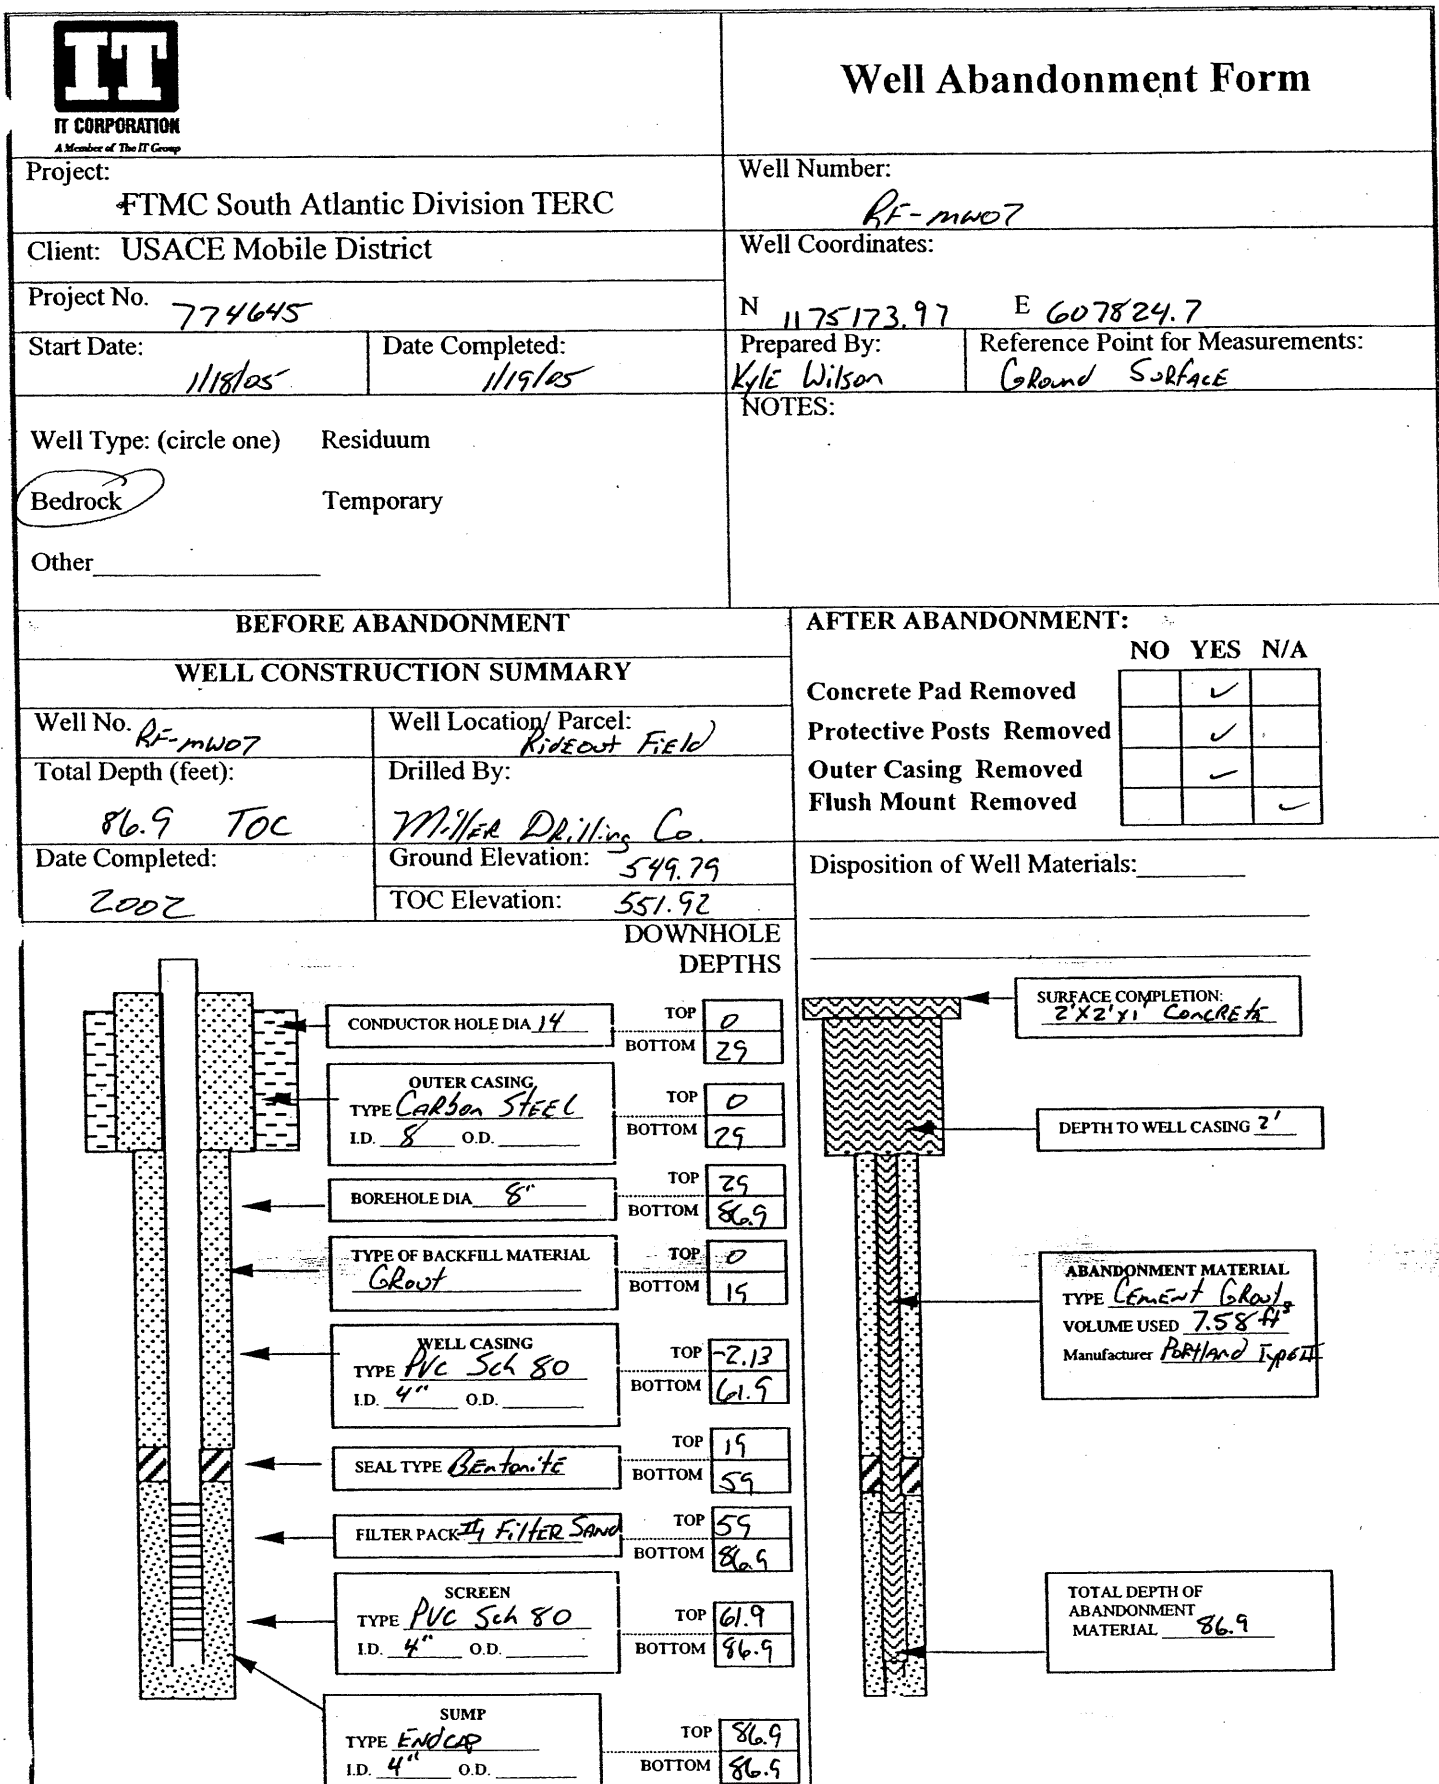 IT
IT CORPORATION
A Member of The IT Group
Well Abandonment Form
Project:
FTMC South Atlantic Division TERC
Well Number:
RF-MW07
Client: USACE Mobile District
Well Coordinates:
Project No. 774645
N 1175173.97 E 607824.7
Start Date:
1/18/05
Date Completed:
1/19/05
Prepared By:
Kyle Wilson
Reference Point for Measurements:
Ground Surface
NOTES:
Well Type: (circle one) Residuum
Bedrock Temporary
Other
BEFORE ABANDONMENT
WELL CONSTRUCTION SUMMARY
Well No. RF-MW07
Well Location/ Parcel:
Rideout Field
Total Depth (feet):
86.9 TOC
Drilled By:
Miller Drilling Co.
Date Completed:
2002
Ground Elevation: 549.79
TOC Elevation: 551.92
AFTER ABANDONMENT:
NO YES N/A
Concrete Pad Removed ✓
Protective Posts Removed ✓
Outer Casing Removed ✓
Flush Mount Removed ✓
Disposition of Well Materials:
DOWNHOLE
DEPTHS
CONDUCTOR HOLE DIA 14
TOP 0
BOTTOM 29
OUTER CASING
TYPE Carbon Steel
I.D. 8 O.D.
TOP 0
BOTTOM 29
BOREHOLE DIA 8"
TOP 29
BOTTOM 86.9
TYPE OF BACKFILL MATERIAL
Grout
TOP 0
BOTTOM 19
WELL CASING
TYPE PVC Sch 80
I.D. 4" O.D.
TOP -2.13
BOTTOM 61.9
SEAL TYPE Bentonite
TOP 19
BOTTOM 59
FILTER PACK Filter Sand
TOP 59
BOTTOM 86.9
SCREEN
TYPE PVC Sch 80
I.D. 4" O.D.
TOP 61.9
BOTTOM 86.9
SUMP
TYPE Endcap
I.D. 4" O.D.
TOP 86.9
BOTTOM 86.9
SURFACE COMPLETION:
2'X2'X1' Concrete
DEPTH TO WELL CASING 2'
ABANDONMENT MATERIAL
TYPE Cement Grout
VOLUME USED 7.58 ft³
Manufacturer Portland Type II
TOTAL DEPTH OF
ABANDONMENT
MATERIAL 86.9